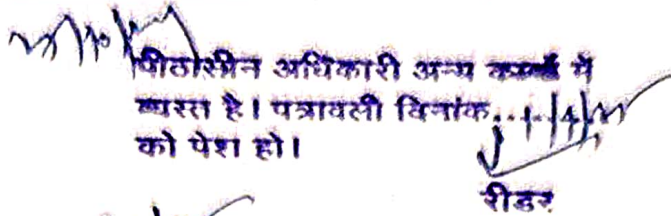 पीठासीन अधिकारी अन्य कार्य में
व्यस्त है। पत्रावली दिनांक...
को पेश हो।
रीडर